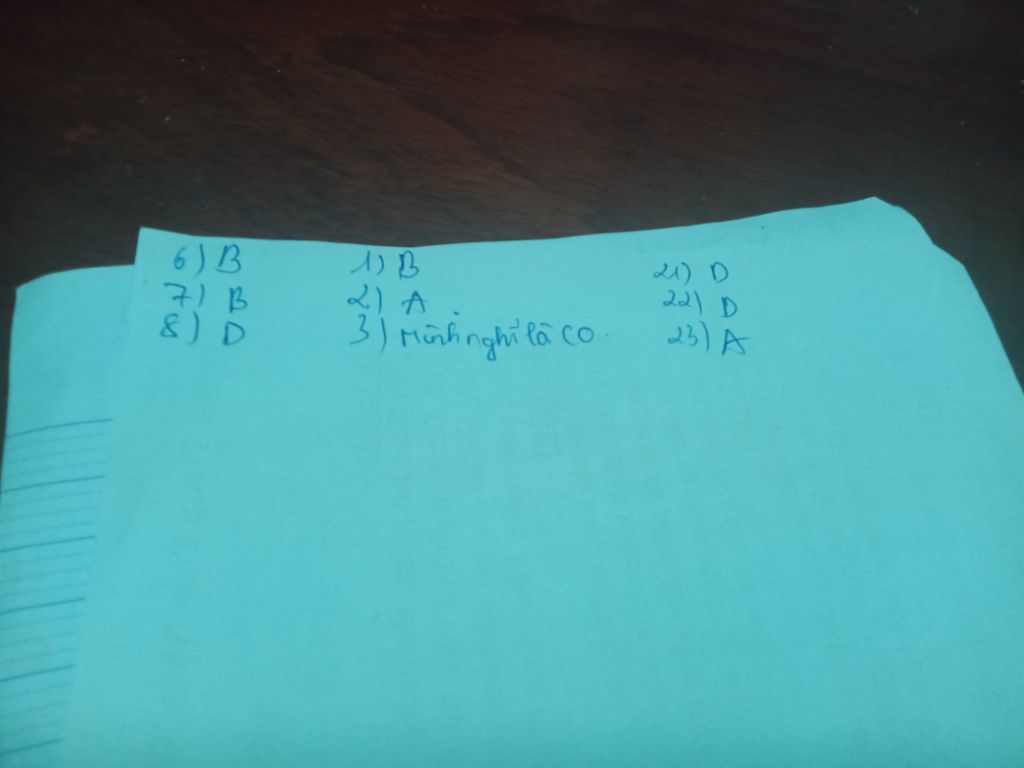 6) B 1) B 21) D
7) B 2) A 22) D
8) D 3) Mình nghĩ là CO. 23) A